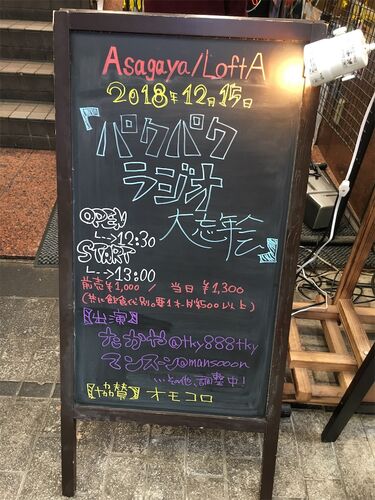 Asagaya/LoftA
2018年12月15日
『パクパク
ラジオ
大忘年会』
OPEN
→12:30
START
→13:00
前売¥1,000 / 当日¥1,300
(共に飲食代別。要1オーダー¥500以上)
【出演】
たかや@tky888tky
マンスーン@mansooon
…その他、調整中!
【協賛】オモコロ